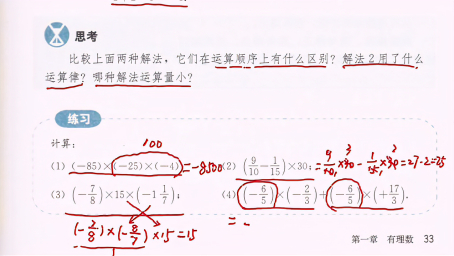 思考
比较上面两种解法，它们在运算顺序上有什么区别？解法2用了什么
运算律？哪种解法运算量小？
练习
计算：
100
(1) (−85)×(−25)×(−4)=−8500 (2) (9/10−1/15)×30；=9/10×30−1/15×30=27−2=25
3 2
(3) (−7/8)×15×(−1 1/7)； (4) (−6/5)×(−2/3)+(−6/5)×(+17/3).
(−7/8)×(−8/7)×15=15
= -
1
第一章 有理数 33